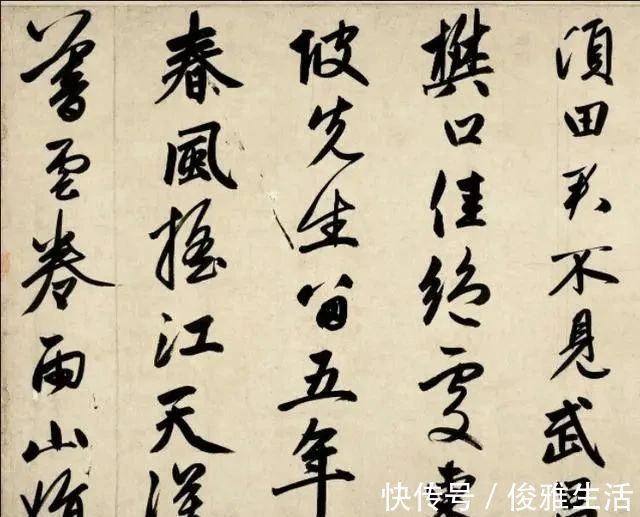 須田君不見武昌
樊口佳絕處東
坡先生留五年
春風搖江天漠
暮雲卷雨山娟
快传号 / 俊雅生活